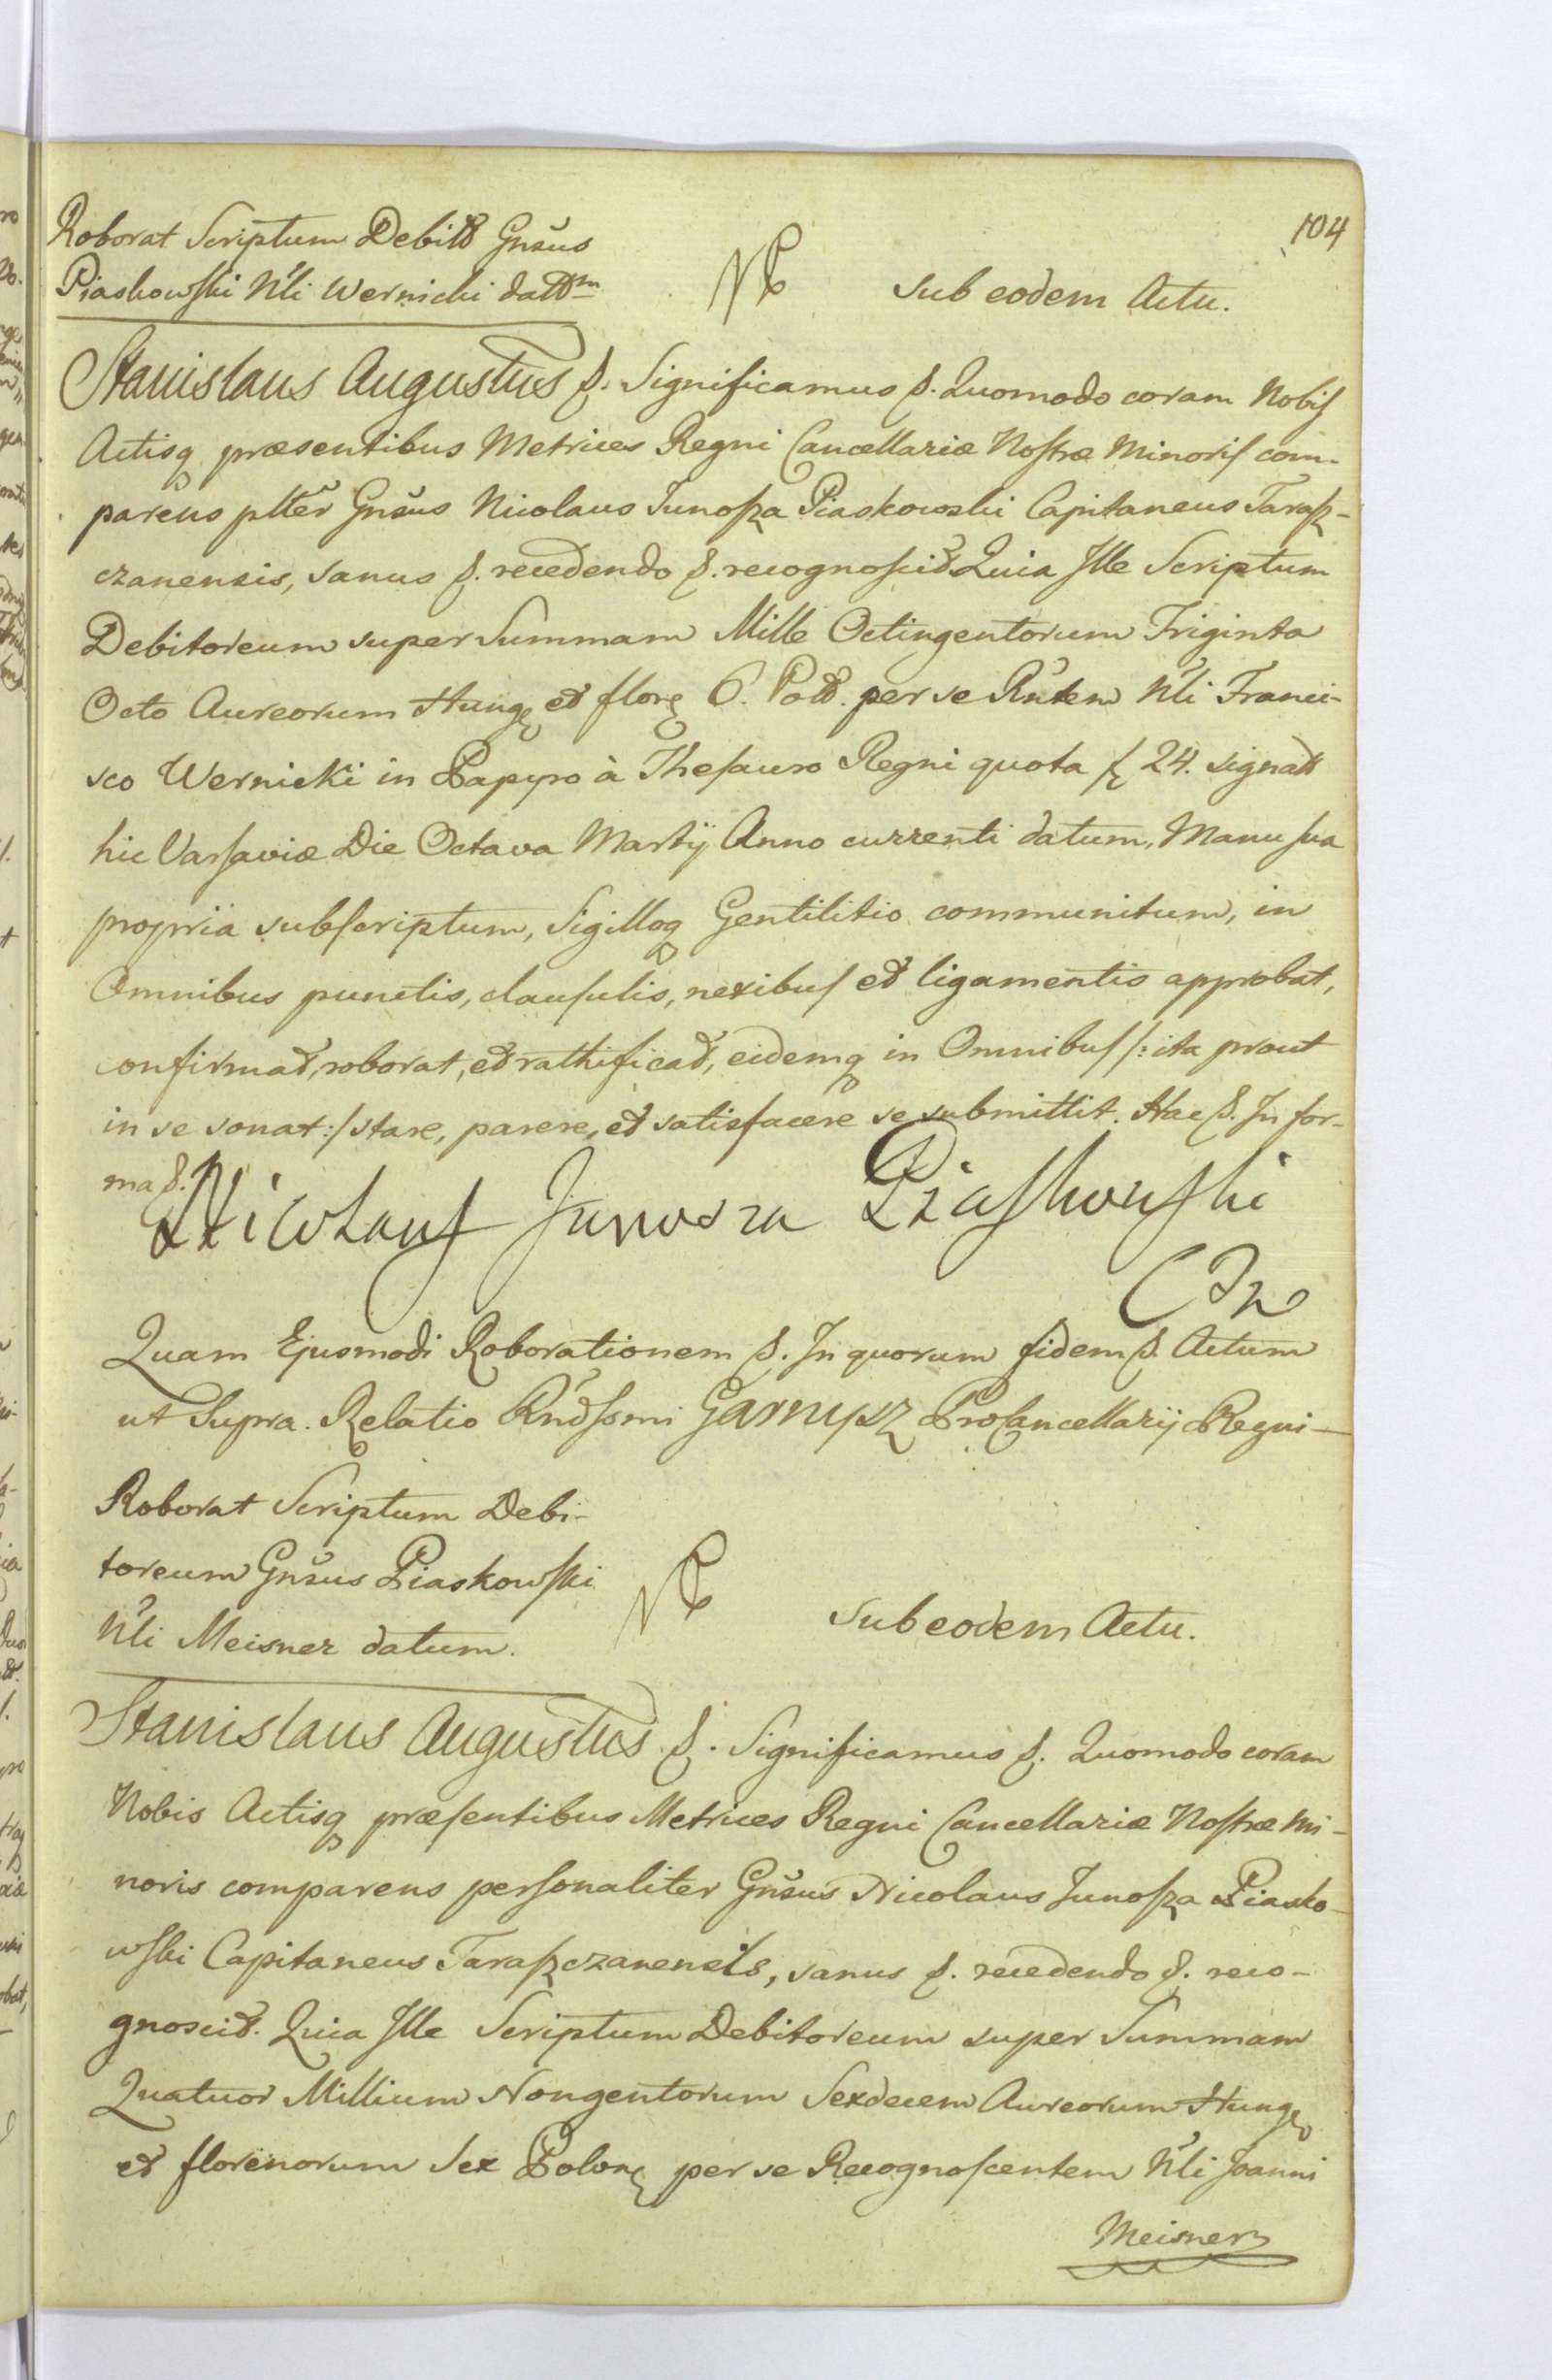 104
Roborat Scriptum Debitt Gnsus
Piaskowski Nli Wernicki dattm
Sub eodem Actu.
Stanislaus Augustus &. Significamus &. Quomodo coram Nobis
Actisq præsentibus Metrices Regni Cancellariæ Nostræ Minoris com-
parens plter Gnsus Nicolaus Junosza Piaskowski Capitaneus Tarasz-
czanensis, sanus &. recedendo &. recognoscit. Quia Ille Scriptum
Debitoreum super Summam Mille Octingentorum Triginta
Octo Aureorum Hung et flor 6. Poll. per se Rntem Nli Franci-
sco Wernicki in Papyro à Thesauro Regni quota f 24. signatt
hic Varsaviæ Die Octava Martÿ Anno currenti datum, Manu sua
propria subscriptum, Sigilloq Gentilitio communitum, in
Omnibus punctis, clausulis, nexibus et ligamentis approbat,
confirmat, roborat, et rathificat, eidemq in Omnibus /: ita prout
in se sonat :/ stare, parere, et satisfacere se submittit. Hac &. In for-
ma &.
Nicolaus Junosza Piaskowski
Quam Ejusmodi Roborationem &. In quorum fidem &. Actum
ut Supra. Relatio Rndssmi Garnysz ProCancellarÿ Regni-
Roborat Scriptum Debi-
toreum Gnsus Piaskowski
Nli Meisner datum.
Sub eodem Actu.
Stanislaus Augustus &. Significamus &. Quomodo coram
Nobis Actisq præsentibus Metrices Regni Cancellariæ Nostræ Mi-
noris comparens personaliter Gnsus Nicolaus Junosza Piasko-
wski Capitaneus Taraszczanensis, sanus &. recedendo &. reco-
gnoscit. Quia Ille Scriptum Debitoreum super Summam
Quatuor Millium Nongentorum Sexdecem Aureorum Hung
et florenorum Sex Polon per se Recognoscentem Nli Joanni
Meisner